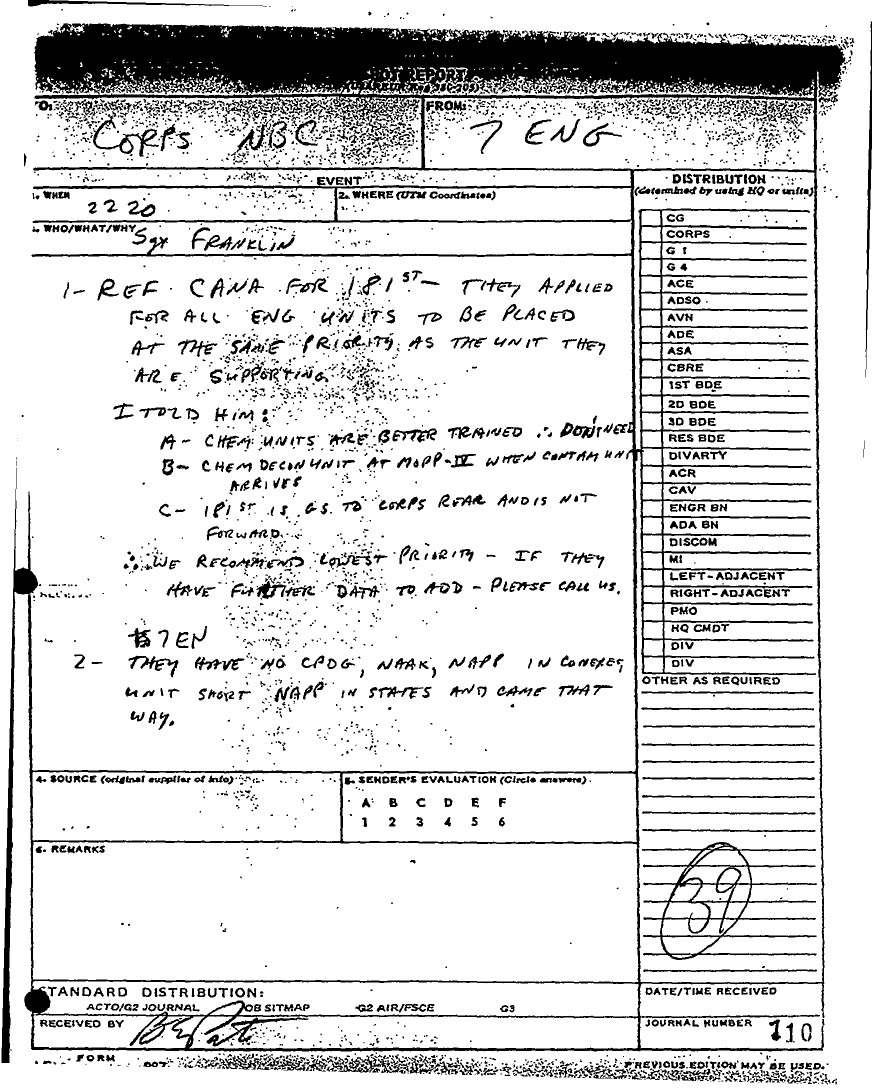 SPOT REPORT
TO:
FROM:
CORPS NBC
7 ENG
EVENT
1. WHEN
2220
2. WHERE (UTM Coordinates)
WHO/WHAT/WHY
Sgt FRANKLIN
1- REF. CANA FOR 181ST - THEY APPLIED
FOR ALL ENG UNITS TO BE PLACED
AT THE SAME PRIORITY AS THE UNIT THEY
ARE SUPPORTING
I TOLD HIM:
A - CHEM UNITS ARE BETTER TRAINED ∴ DON'T NEED
B - CHEM DECON UNIT AT MOPP-IV WHEN CONTAM UNIT
ARRIVES
C - 181ST IS GS TO CORPS REAR AND IS NOT
FORWARD
∴ WE RECOMMEND LOWEST PRIORITY - IF THEY
HAVE FURTHER DATA TO ADD - PLEASE CALL US.
7EN
2 - THEY HAVE NO CPDG, NAAK, NAPP IN CONEXES,
UNIT SHORT NAPP IN STATES AND CAME THAT
WAY.
4. SOURCE (original supplier of info)
5. SENDER'S EVALUATION (Circle answers)
A B C D E F
1 2 3 4 5 6
6. REMARKS
DISTRIBUTION
(determined by using HQ or units)
CG
CORPS
G 1
G 4
ACE
ADSO
AVN
ADE
ASA
CBRE
1ST BDE
2D BDE
3D BDE
RES BDE
DIVARTY
ACR
CAV
ENGR BN
ADA BN
DISCOM
MI
LEFT-ADJACENT
RIGHT-ADJACENT
PMO
HQ CMDT
DIV
DIV
OTHER AS REQUIRED
39
STANDARD DISTRIBUTION:
ACTO/G2 JOURNAL OB SITMAP G2 AIR/FSCE G3
RECEIVED BY
DATE/TIME RECEIVED
JOURNAL NUMBER 110
FORM
PREVIOUS EDITION MAY BE USED.